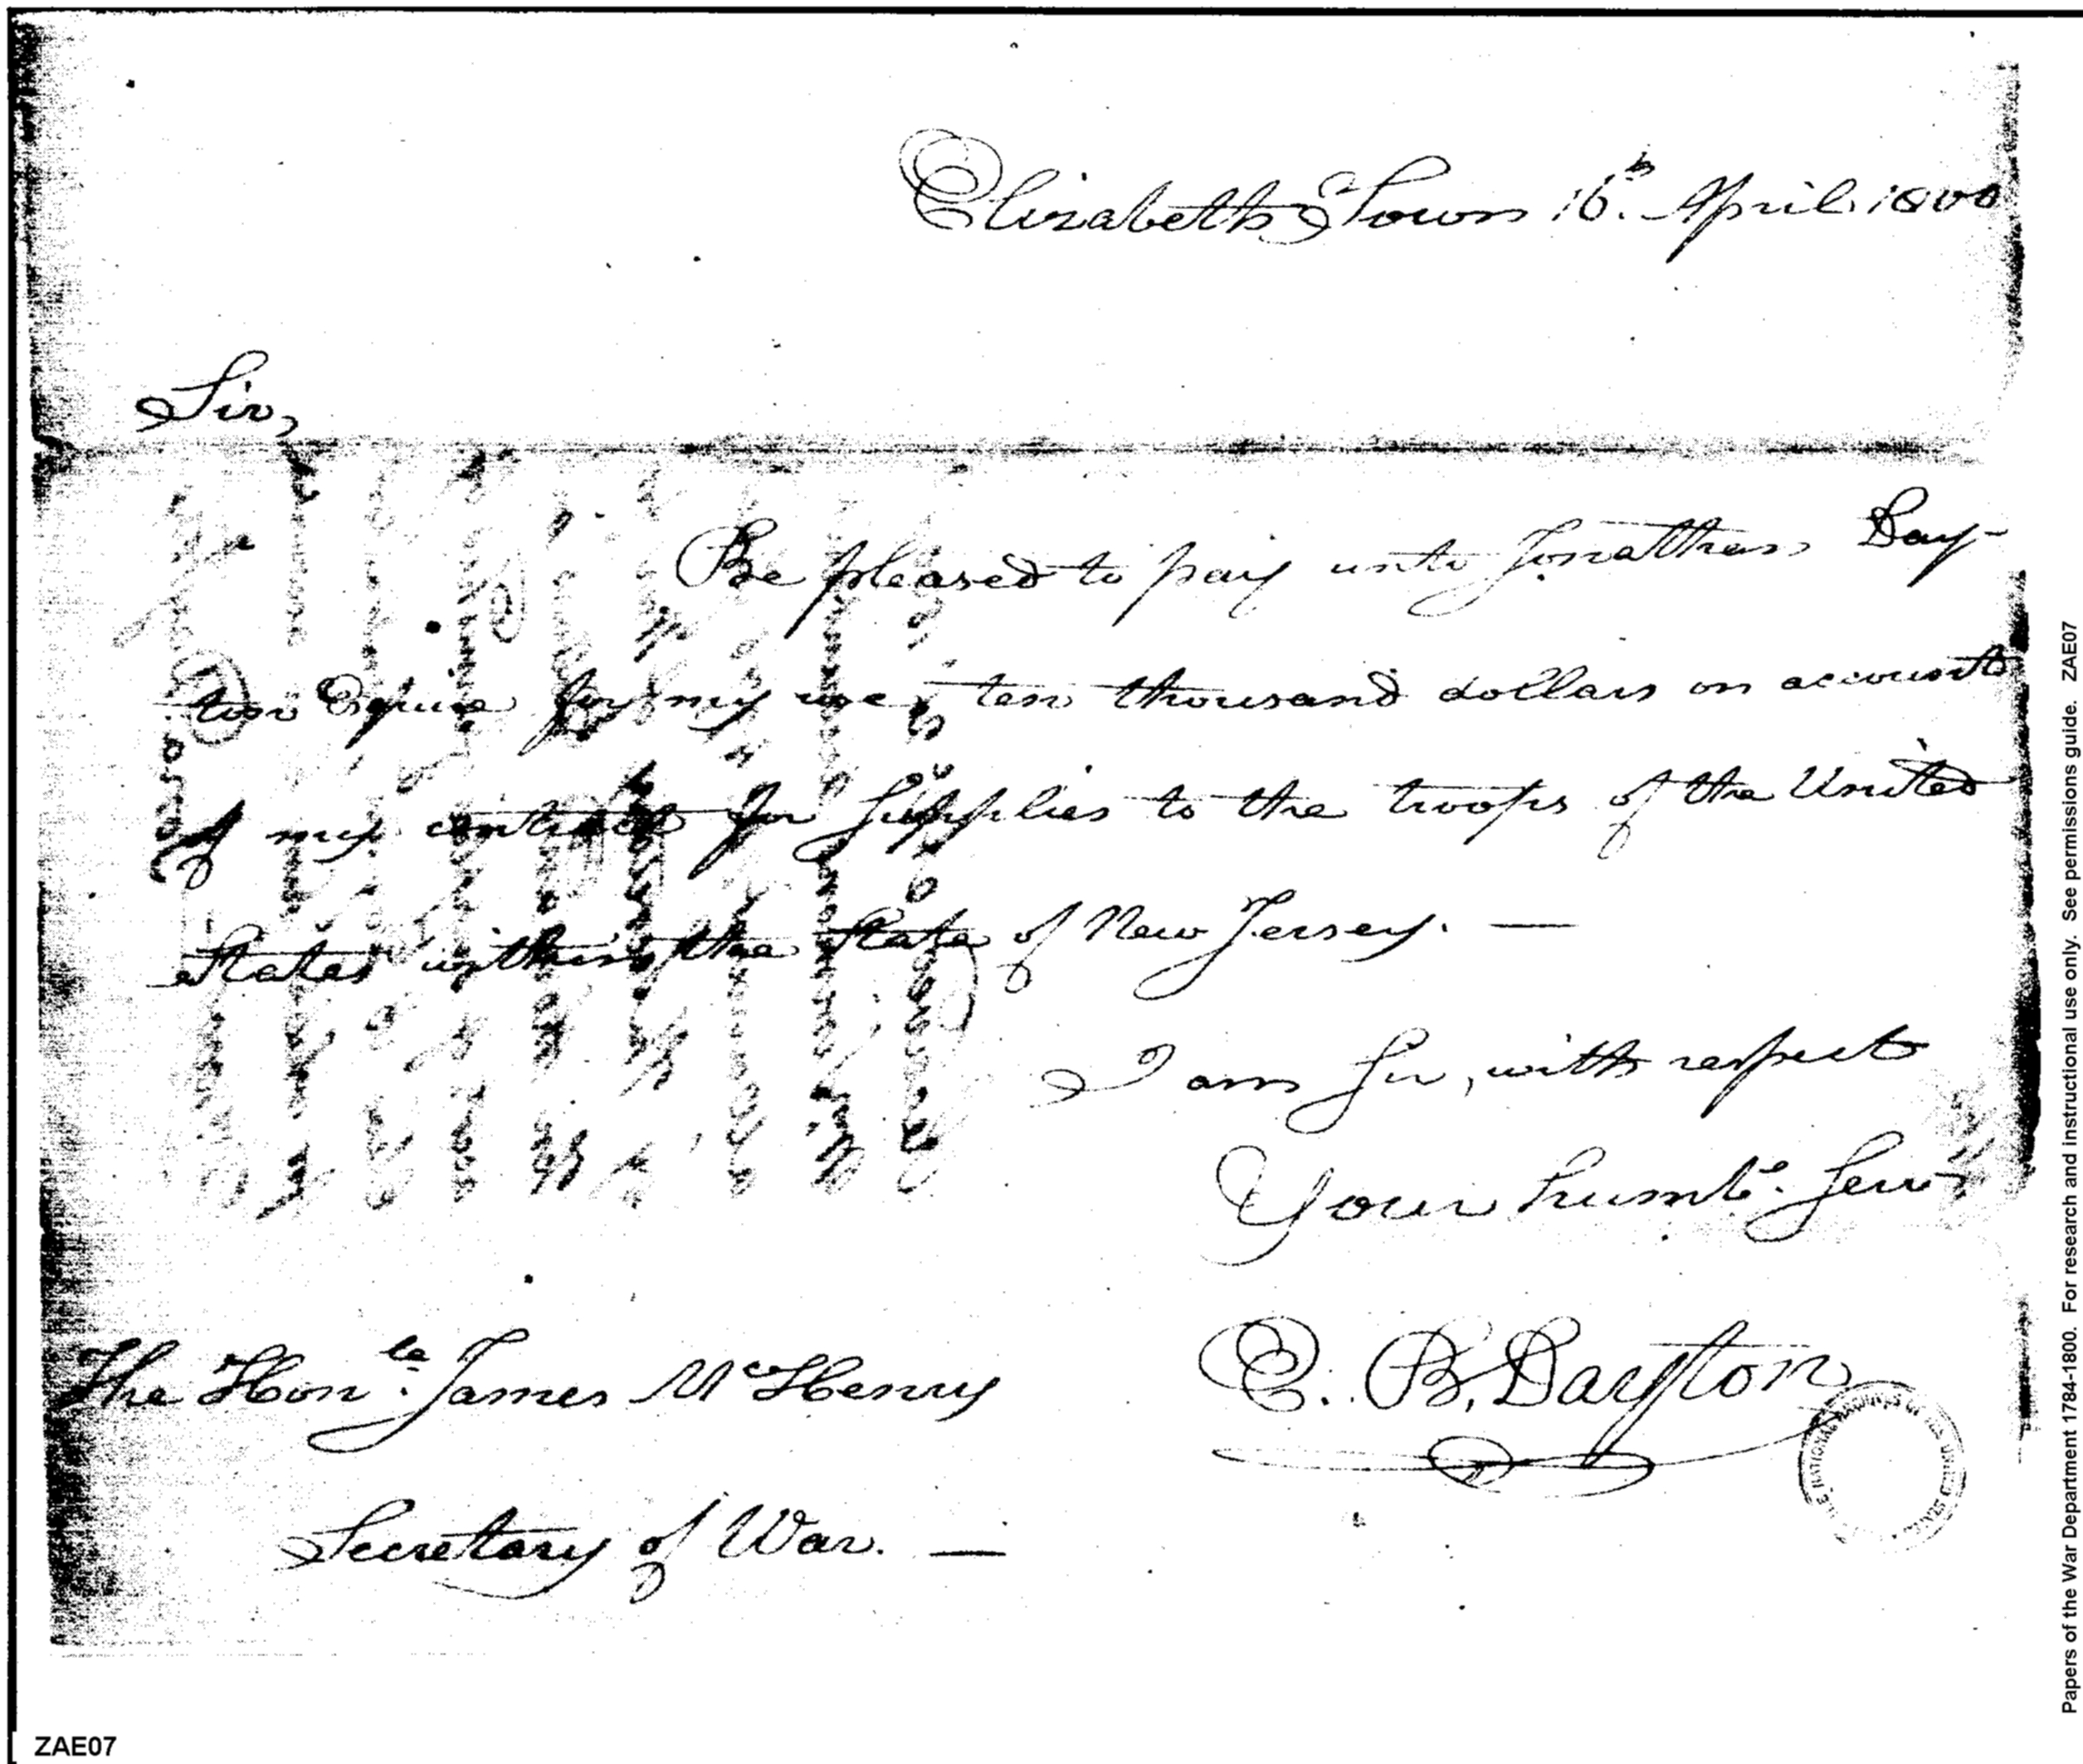 Elizabeth Town 16th. April 1800
Sir,
Be pleased to pay unto Jonathan Day-
ton Esquire for my use, ten thousand dollars on account
of my contract for Supplies to the troops of the United
States within the State of New Jersey. —
I am Sir, with respect
Your humle. Servt
E. B. Dayton
The Honle. James McHenry
Secretary of War. —
Papers of the War Department 1784-1800. For research and instructional use only. See permissions guide. ZAE07
ZAE07